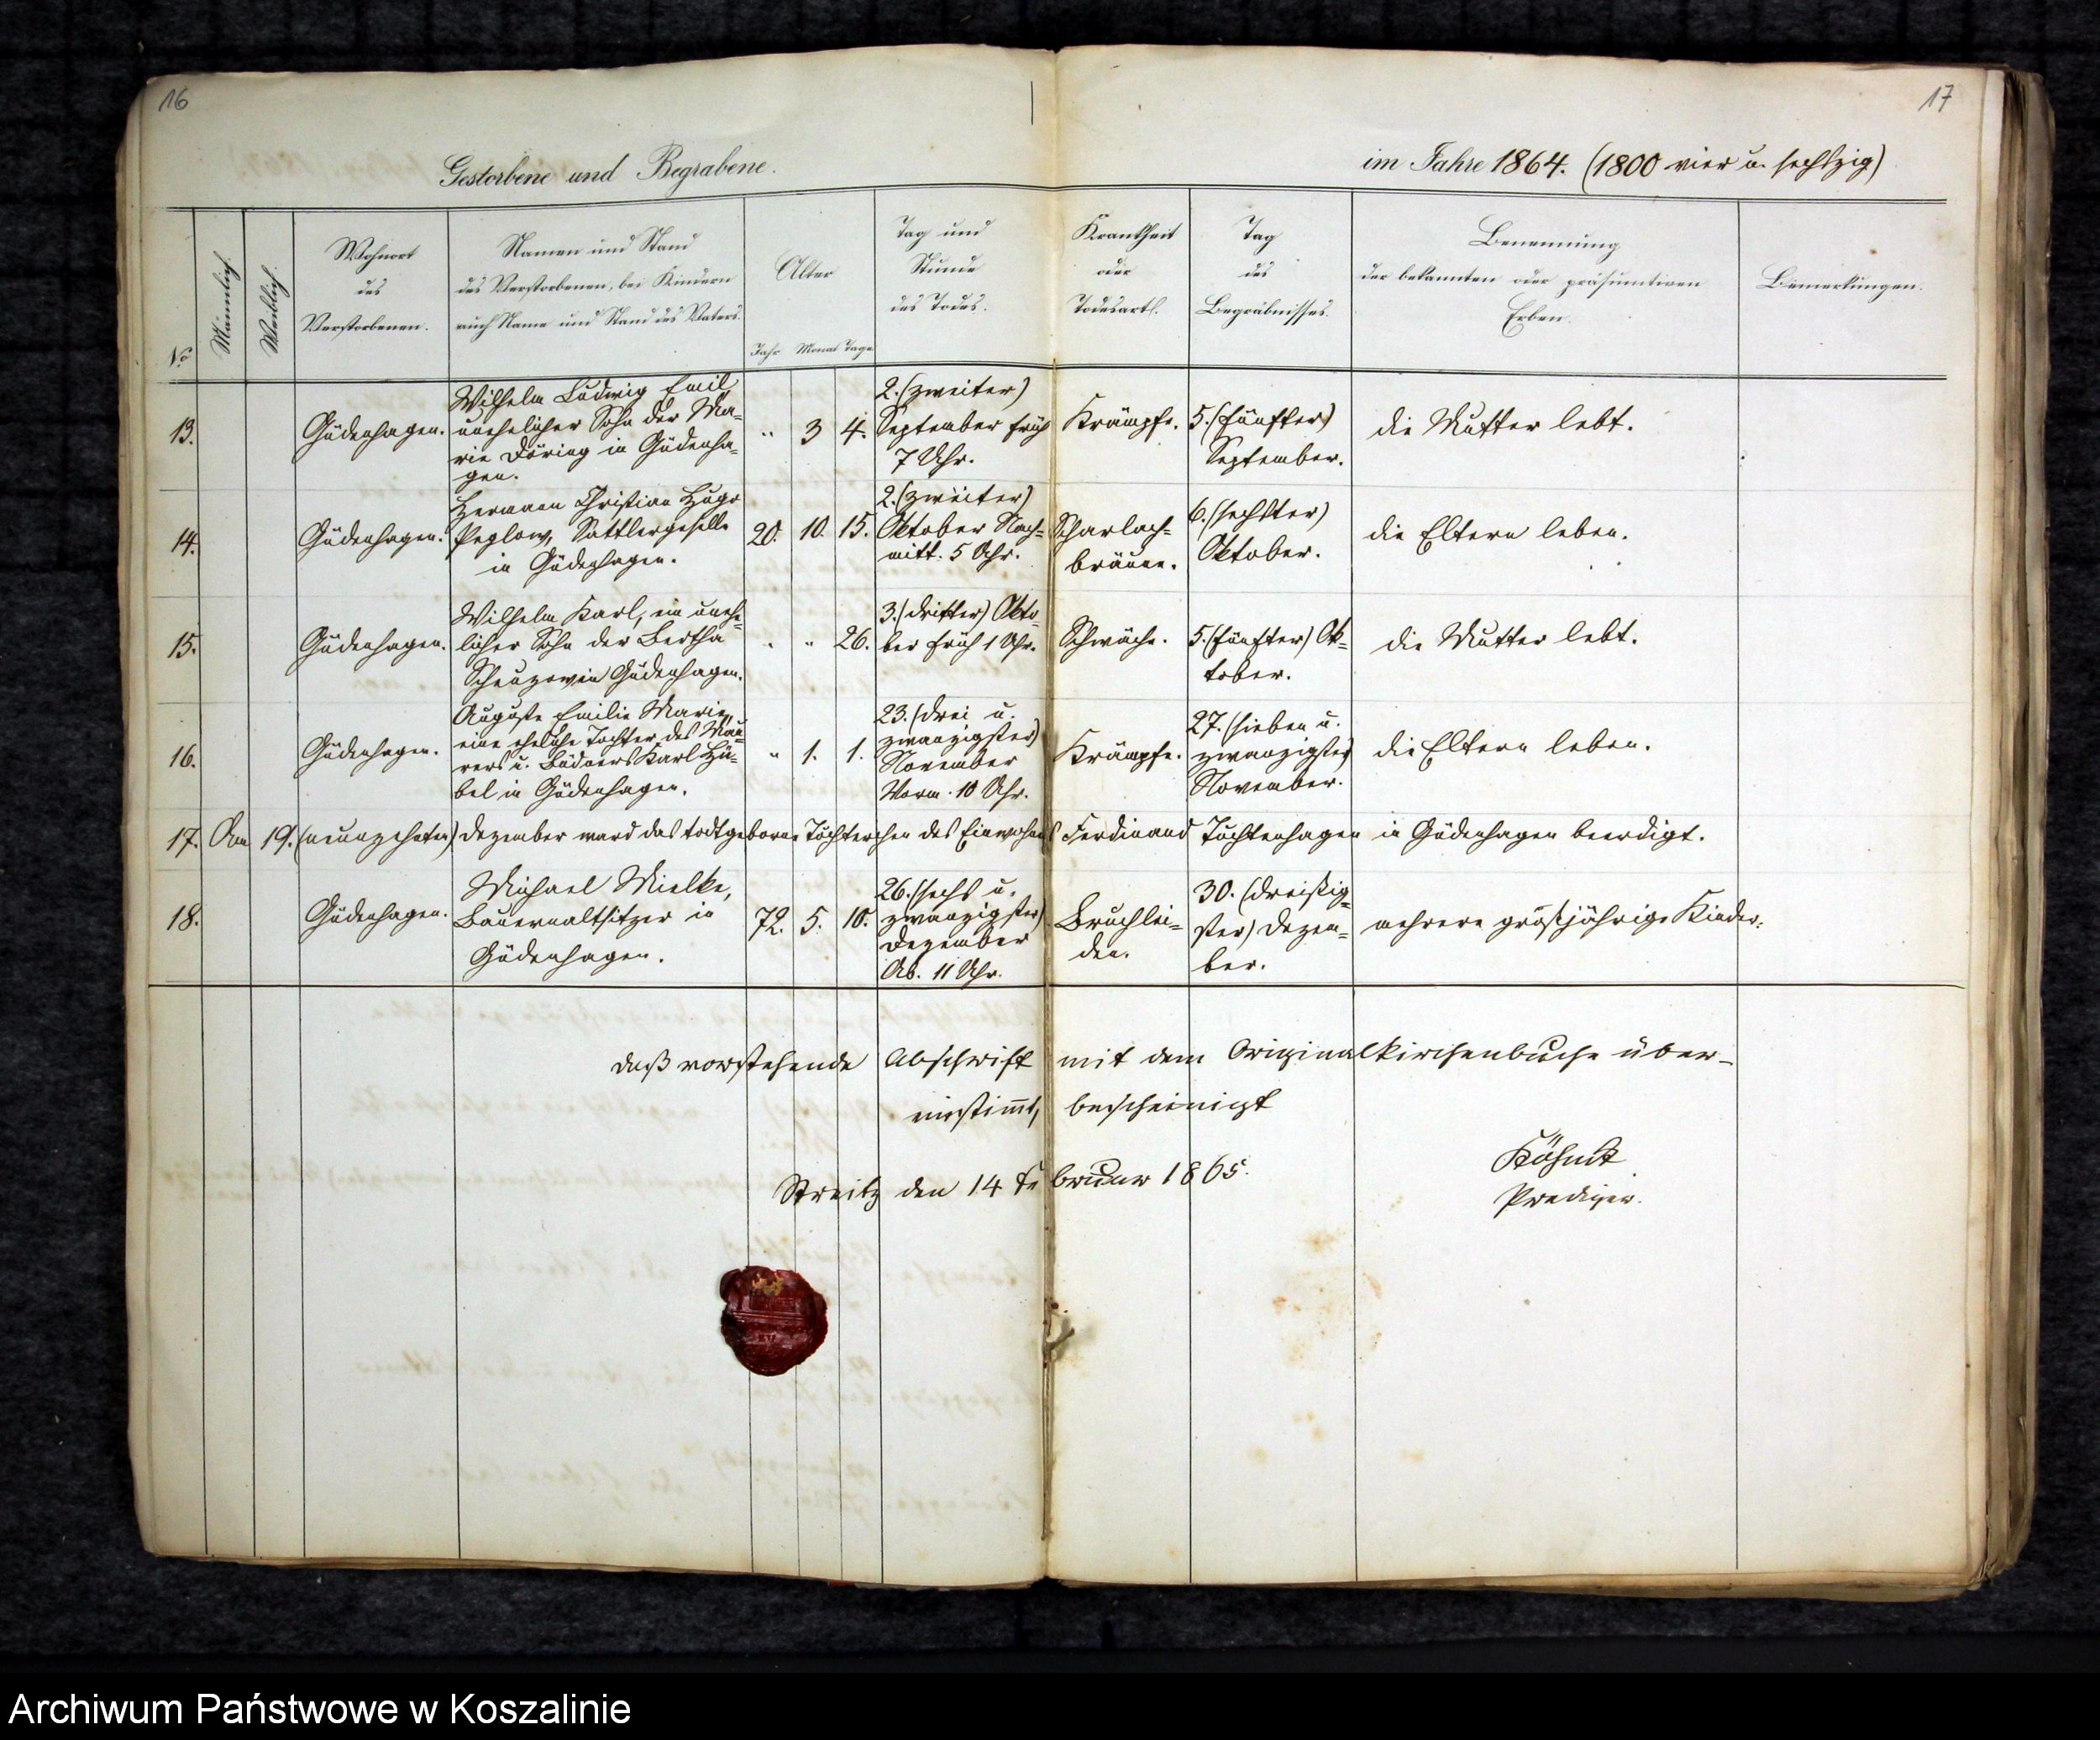 16
17
Gestorbene und Begrabene.
im Jahre 1864. (1800 vier u. sechszig)
No
Männlich.
Weiblich.
Wohnort
des
Verstorbenen.
Namen und Stand
des Verstorbenen, bei Kindern
auch Name und Stand des Vaters.
Alter
Jahr Monat Tage
Tag und
Stunde
des Todes.
Krankheit
oder
Todesart.
Tag
des
Begräbnisses.
Benennung
der bekannten oder präsumtiven
Erben.
Bemerkungen.
13.
Güdenhagen.
Wilhelm Ludwig Emil,
unehelicher Sohn der Ma-
rie Döring in Güdenha-
gen.
" 3 4.
2. (zweiter)
September früh
7 Uhr.
Krämpfe.
5. (fünfter)
September.
die Mutter lebt.
14.
Güdenhagen.
Hermann Christian Hugo
Peglow, Sattlergeselle
in Güdenhagen.
20. 10. 15.
2. (zweiter)
Oktober Nach-
mitt. 5 Uhr.
Scharlach-
bräune.
6. (sechster)
Oktober.
die Eltern leben.
15.
Güdenhagen.
Wilhelm Karl, ein unehe-
licher Sohn der Bertha
in Güdenhagen.
" " 26.
3. (dritter) Okto-
ber früh 1 Uhr.
Schwäche.
5. (fünfter) Ok-
tober.
die Mutter lebt.
16.
Güdenhagen.
Auguste Emilie Marie,
eine eheliche Tochter des Mau-
rers u. Büdners Karl Hü-
bel in Güdenhagen.
" 1. 1.
23. (drei u.
zwanzigster)
November
Vorm. 10 Uhr.
Krämpfe.
27. (sieben u.
zwanzigster)
November.
die Eltern leben.
17. Am 19. (neunzehnten) Dezember ward das todtgeborne Töchterchen des Einwohners Ferdinand Tuchtenhagen in Güdenhagen beerdigt.
18.
Güdenhagen.
Michael Mielke,
Bauernaltsitzer in
Güdenhagen.
72. 5. 10.
26. (sechs u.
zwanzigster)
Dezember
Ab. 11 Uhr.
Bruchlei-
den.
30. (dreißig-
ster) Dezem-
ber.
mehrere großjährige Kinder.
Daß vorstehende Abschrift mit dem Originalkirchenbuche über-
einstimmt, bescheinigt
Streitz den 14 Februar 1865.
Prediger.
Archiwum Państwowe w Koszalinie